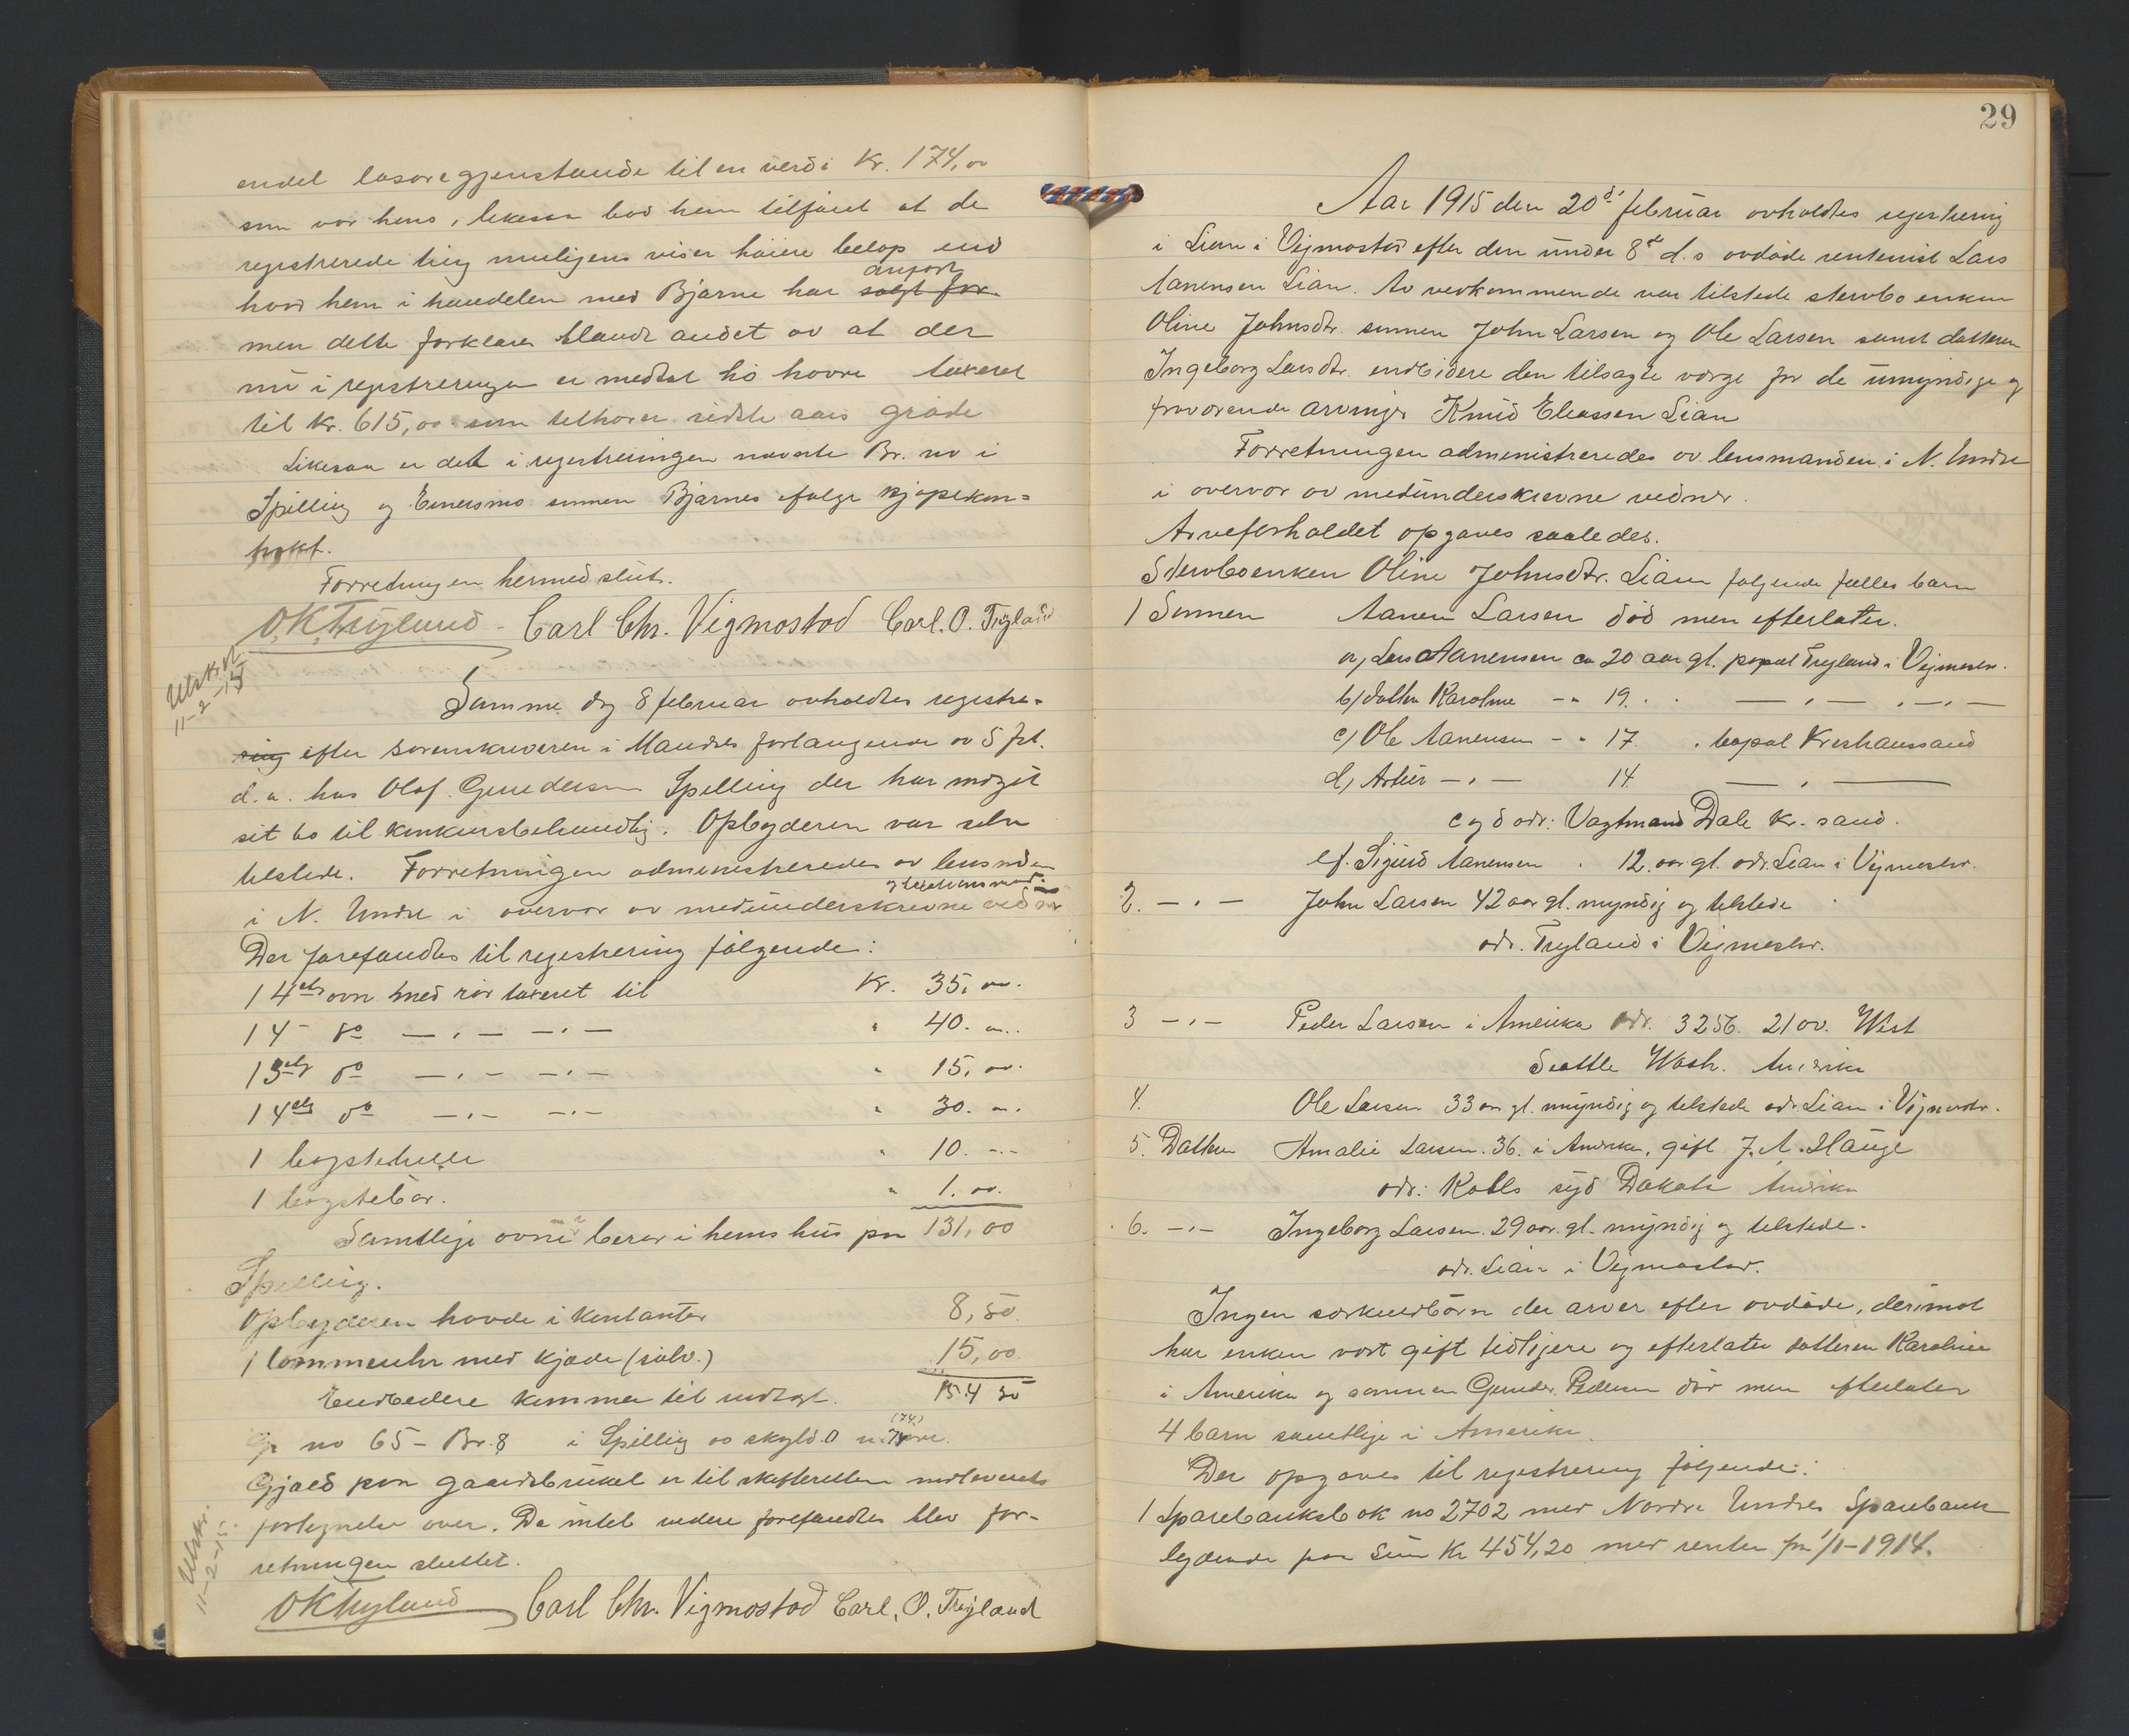 endel løsøregjenstande til en værdi Kr. 174,00
som var hans, likesaa bad han tilføiet at de
registrerede ting muligens viser høiere beløp end
hvad han i handelen med Bjarne har anført solgt for
men dette forklares blandt andet av at der
nu i registreringen er medtat hø havre taxeret
til Kr. 615,00 som tilhører sidste aars grøde
Likesaa er det i registreringen nævnte Br. no i
Spilling og sønnen Bjarnes ifølge kjøpekon=
trakt.
Forretningen hermed slut.
O.K. Tryland - Carl Chr. Vigmostad Carl. O. Tryland
Utskr.
11-2-15
Samme dag 8 februar avholdtes registre=
ring efter sorenskriveren i Mandals forlangende av 5 fbr.
d.a. hos Olaf Gundersen Spilling der har
sit bo til konkursbehandlig. Opbyderen var selv
tilstede. Forretningen administreredes av lensmden
i N. Undal i overvær av medunderskrevne vidner
Der forefandtes til registrering følgende:
1 4 etg ovn med rør taxeret til Kr. 35,00.
1 4 - do — " — — " — " 40.00.
1 3 etg do — " — — " — " 15,00.
1 4 etg do — " — — " — " 30.00.
1 10.--
1 1.00.
Samtlige ovne i hans hus paa 131,00
Spilling.
Opbyderen havde i kontanter 8,50
1 lommeuhr med kjæde (sølv.) 15,00
Endvidere kommer til indtægt. 154 50
Gr no 65 - Br. 8 i Spilling av skyld. 0 øre. (74)
Gjæld paa gaardsbruket er til skifteretten indleveret
fortegnelse over. Da intet videre forefandtes blev for-
retningen sluttet.
Utskr.
11-2-15.
OKTryland Carl Chr. Vigmostad Carl, O. Tryland
29
Aar 1915 den 20de februar avholdtes registrering
i Lian i Vigmostad efter den under 8de d.s avdøde rentenist Lars
Aanensen Lian. Av vedkommende var tilstede stervbo enken
Oline Johnsdtr. sønnen John Larsen og Ole Larsen samt datteren
Ingeborg Larsdtr. endvidere den tilsagte værge for de umyndige og
fraværende arvinger Knud Eliassen Lian
Forretningen administreredes av lensmanden i N. Undal
i overvær av medunderskrevne vidner.
Arveforholdet opgaves saaledes.
Stervboenken Oline Johnsdtr. Lian følgende fælles barn
1 Sønnen Aanen Larsen død men efterlater.
a, Lars Aanensen ca 20 aar gl. Tryland i Vigmostad.
b, datter Karoline - " 19. . — " — " — " —
c, Ole Aanensen - " 17. . bopæl Kristianssand
d, Artur — " — 14. — " —
c og d adr: Vagtmand Dale Kr. sand.
ef. Sigurd Aanensen . 12 aar gl. adr. Lian i Vigmostad.
2. — " — John Larsen 42 aar gl. myndig og tilstede
adr. Tryland i Vigmostad.
3 — " — Peder Larsen i Amerika adr. 3256. 21 av. West
Seattle Wash. Amerika
4. Ole Larsen 33 aar gl. myndig og tilstede adr. Lian i Vigmostad.
5. Datter Amalie Larsen. 36. i Amerika, gift J. A. Hauge
adr: syd Dakota Amerika
6. — " — Ingeborg Larsen. 29 aar. gl. myndig og tilstede.
adr. Lian i Vigmostad.
Ingen særkuldbørn der arver efter avdøde, derimot
har enken vært gift tidligere og efterlater datteren Karoline
i Amerika og sønnen Gunder Pedersen død men efterlater
4 barn samtlige i Amerika.
Der opgaves til registrering følgende:
1 Sparebanksbok no 2702 med Nordre Undals Sparebank
lydende paa Sum Kr 454,20 med renter fra 1/1-1914.